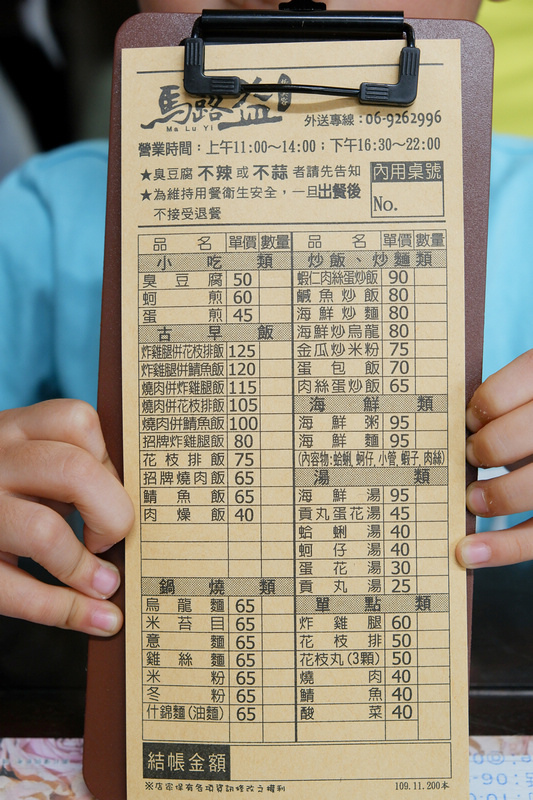 馬路益
Ma Lu Yi
外送專線：06-9262996
營業時間：上午11:00～14:00；下午16:30～22:00
★臭豆腐 不辣 或 不蒜 者請先告知
★為維持用餐衛生安全，一旦出餐後
不接受退餐
內用桌號
No.
品名 單價 數量
小吃類
臭豆腐 50
蚵煎 60
蛋煎 45
古早飯
炸雞腿併花枝排飯 125
炸雞腿併鯖魚飯 120
燒肉併炸雞腿飯 115
燒肉併花枝排飯 105
燒肉併鯖魚飯 100
招牌炸雞腿飯 80
花枝排飯 75
招牌燒肉飯 65
鯖魚飯 65
肉燥飯 40
鍋燒類
烏龍麵 65
米苔目 65
意麵 65
雞絲麵 65
米粉 65
冬粉 65
什錦麵(油麵) 65
品名 單價 數量
炒飯、炒麵類
蝦仁肉絲蛋炒飯 90
鹹魚炒飯 80
海鮮炒麵 80
海鮮炒烏龍 80
金瓜炒米粉 75
蛋包飯 70
肉絲蛋炒飯 65
海鮮類
海鮮粥 95
海鮮麵 95
(內容物:蛤蜊, 蚵仔, 小管, 蝦子, 肉絲)
湯類
海鮮湯 95
貢丸蛋花湯 45
蛤蜊湯 40
蚵仔湯 40
蛋花湯 30
貢丸湯 25
單點類
炸雞腿 60
花枝排 50
花枝丸(3顆) 50
燒肉 40
鯖魚 40
酸菜 40
結帳金額
※店家保有各項資訊修改之權利
109.11.200本